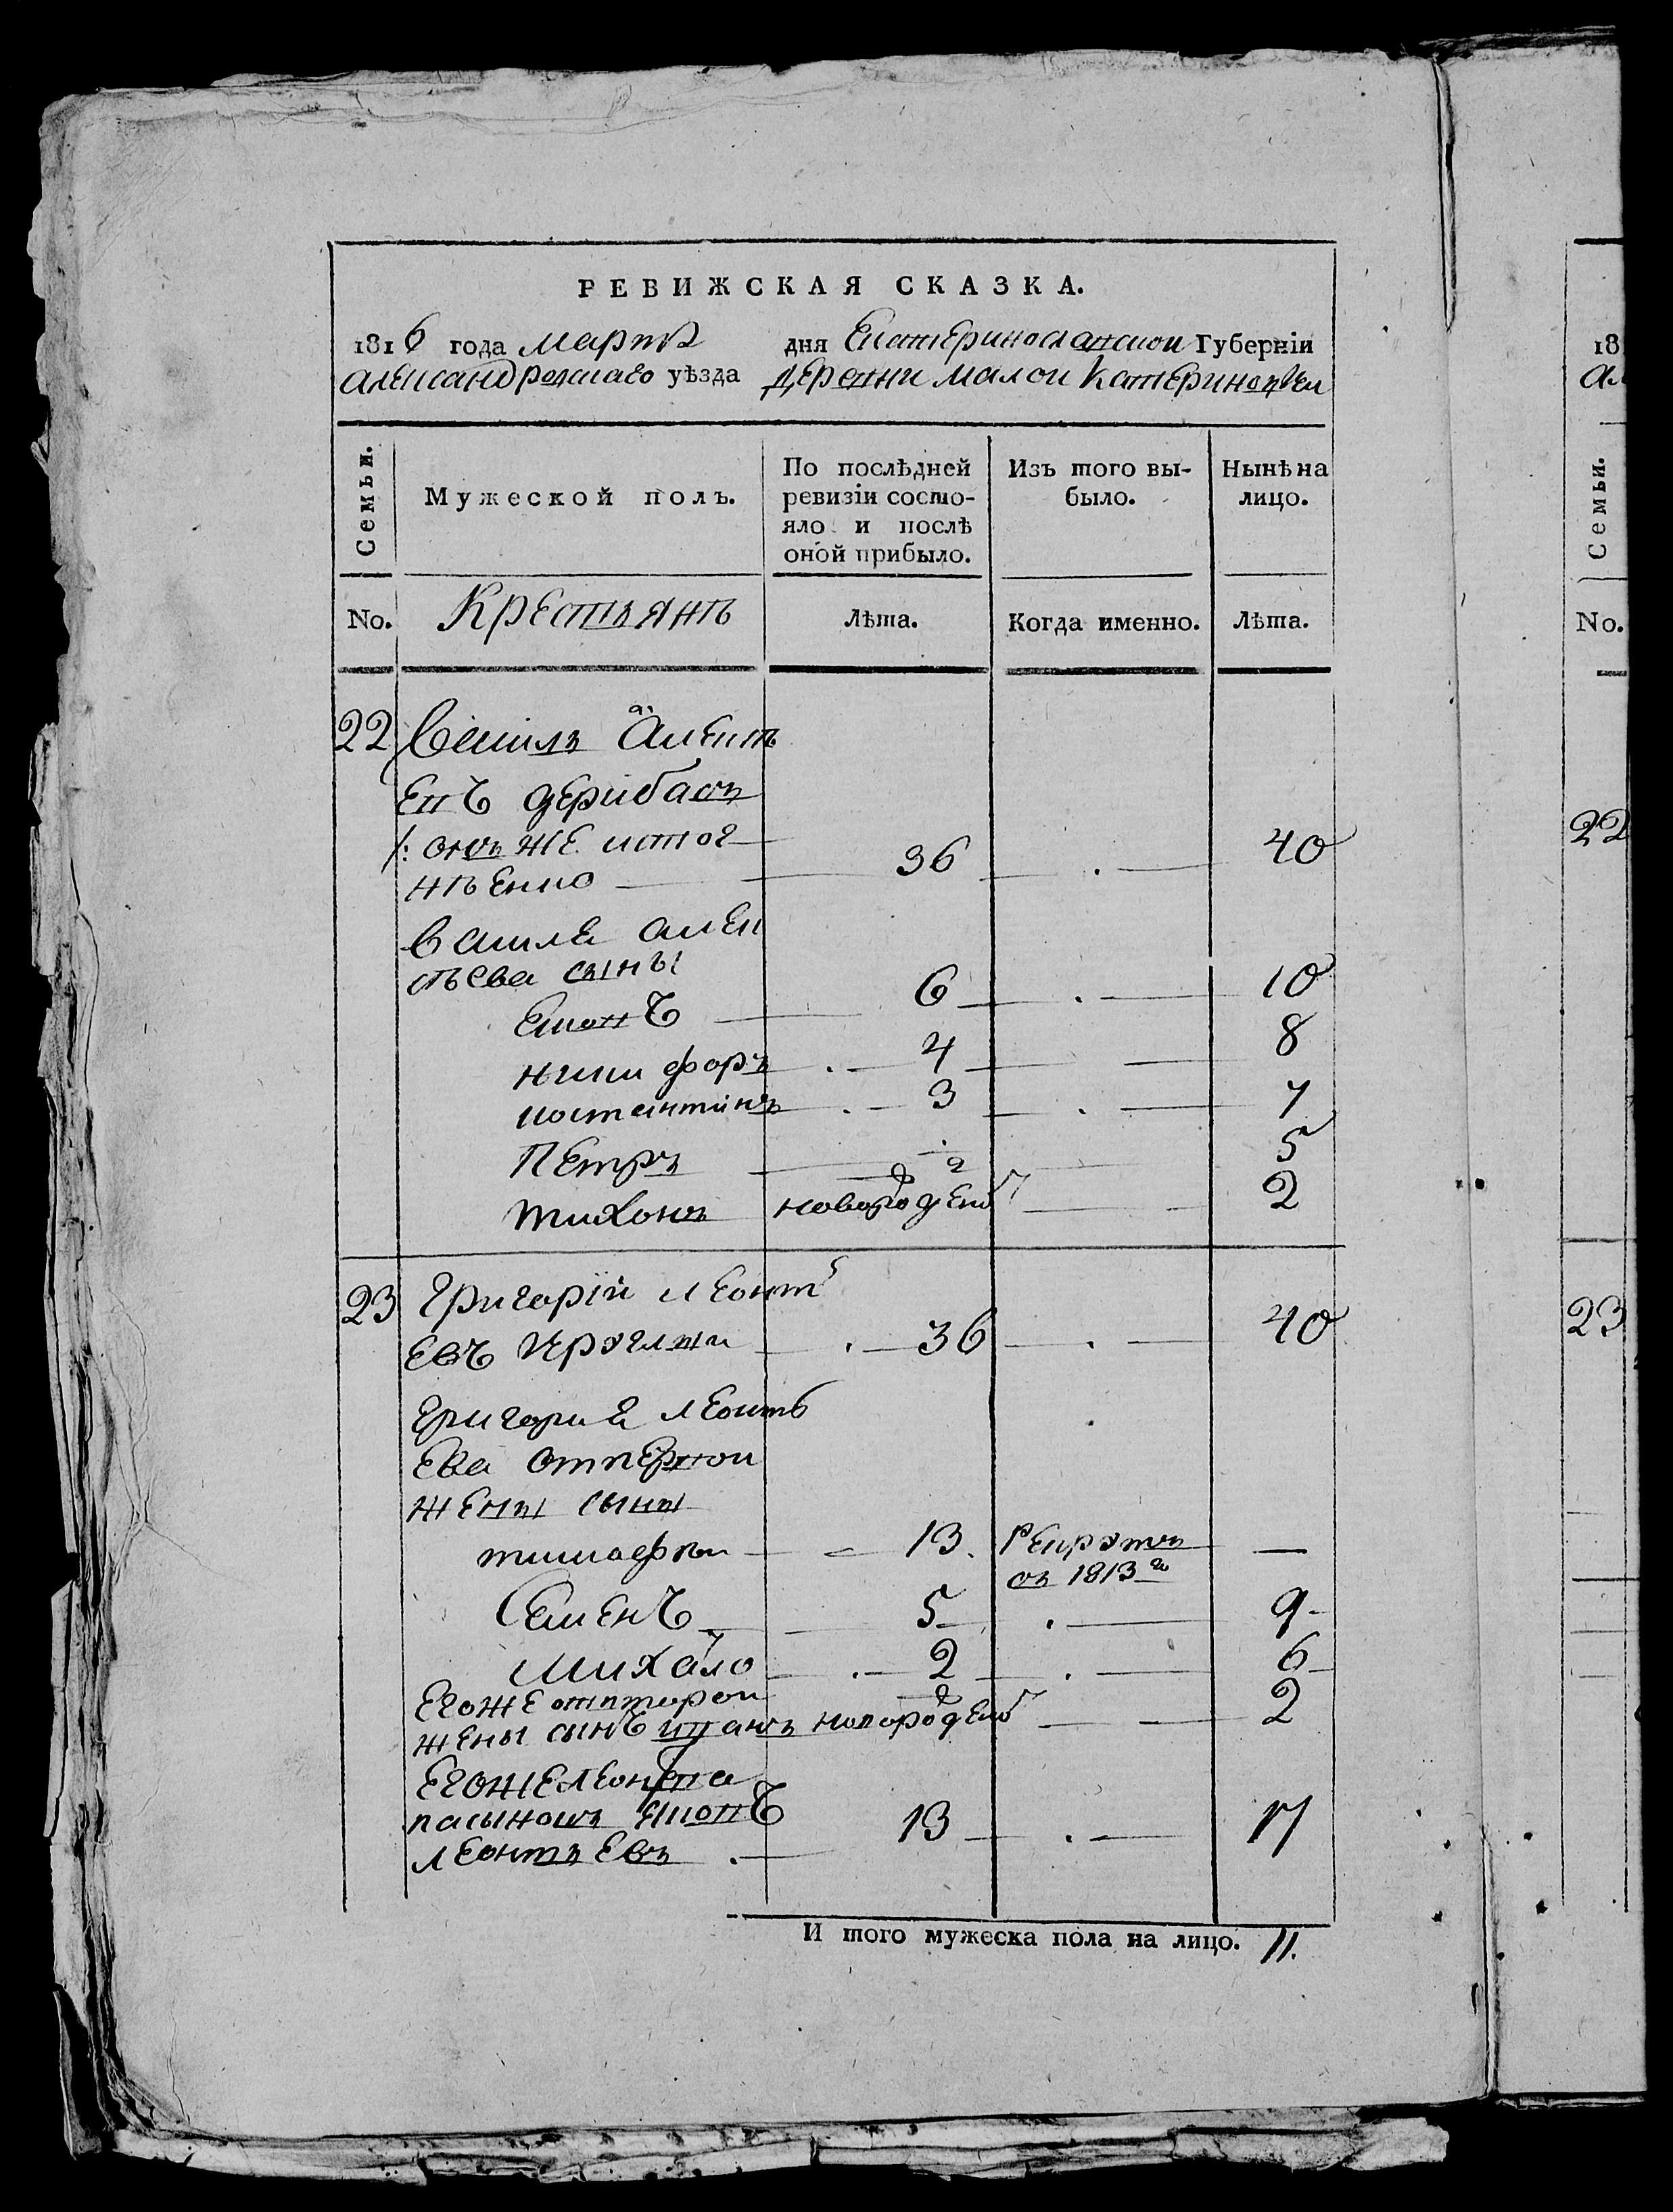 РЕВИЖСКАЯ СКАЗКА.
1816 года марта дня Екатеринославской Губерніи
александровскаго уѣзда деревни малой Катериновки
Семьи.
Мужеской полъ.
По послѣдней ревизіи состо-
яло и послѣ
оной прибыло.
Изъ того вы-
было.
Нынѣ на
лицо.
No.
Крестьянъ
Лѣта.
Когда именно.
Лѣта.
22 Васила Алексѣ
евъ дерибасъ
/: онъ же
36 40
Василя алек
сѣева сыны
Яковъ 6 10
никифоръ 4 8
костантинъ 3 7
Петръ 2 5
тихонъ новорожден 2
23 Григорій леонть
евъ 36 40
григория леонть
ева отпервой
жены сыны
тимофѣй 13 Рекрутъ —
съ 1813г
Семенъ 5 9
михайло 2 6
егоже отвторой
жены сынъ иванъ новорожден 2
Егоже леонтева
пасынокъ яковъ
леонтьевъ 13 17
И того мужеска пола на лицо. 11.
18
ал
Семьи.
No.
22
23